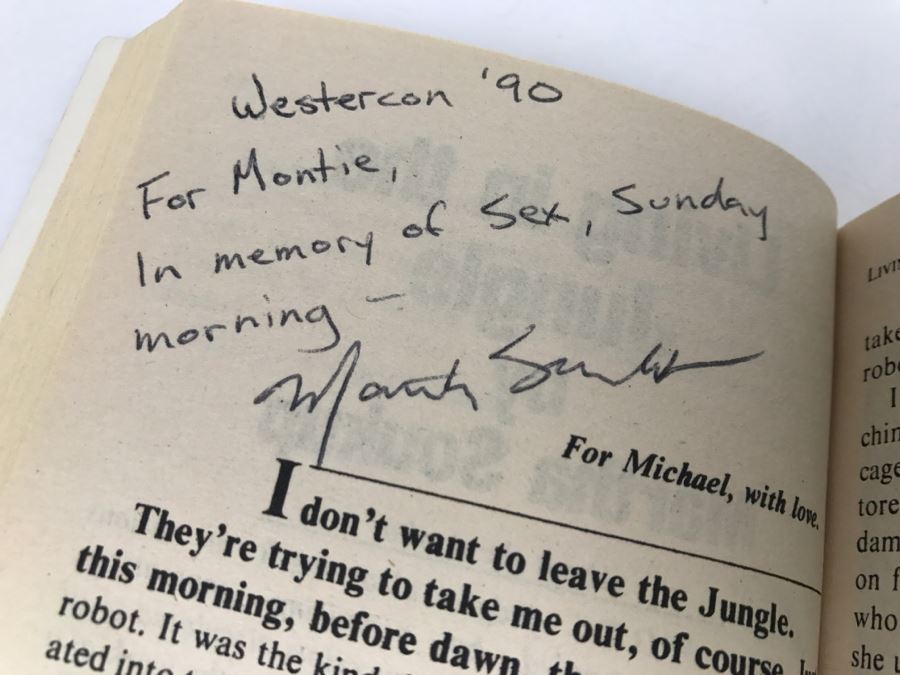 Westercon '90
For Montie,
In memory of Sex, Sunday
morning –
For Michael, with love.
I don't want to leave the Jungle.
They're trying to take me out, of course.
this morning, before dawn,
robot. It was the kind
ated into
LIVI
take
robo
I
chin
cage
tore
dam
on f
who
she u